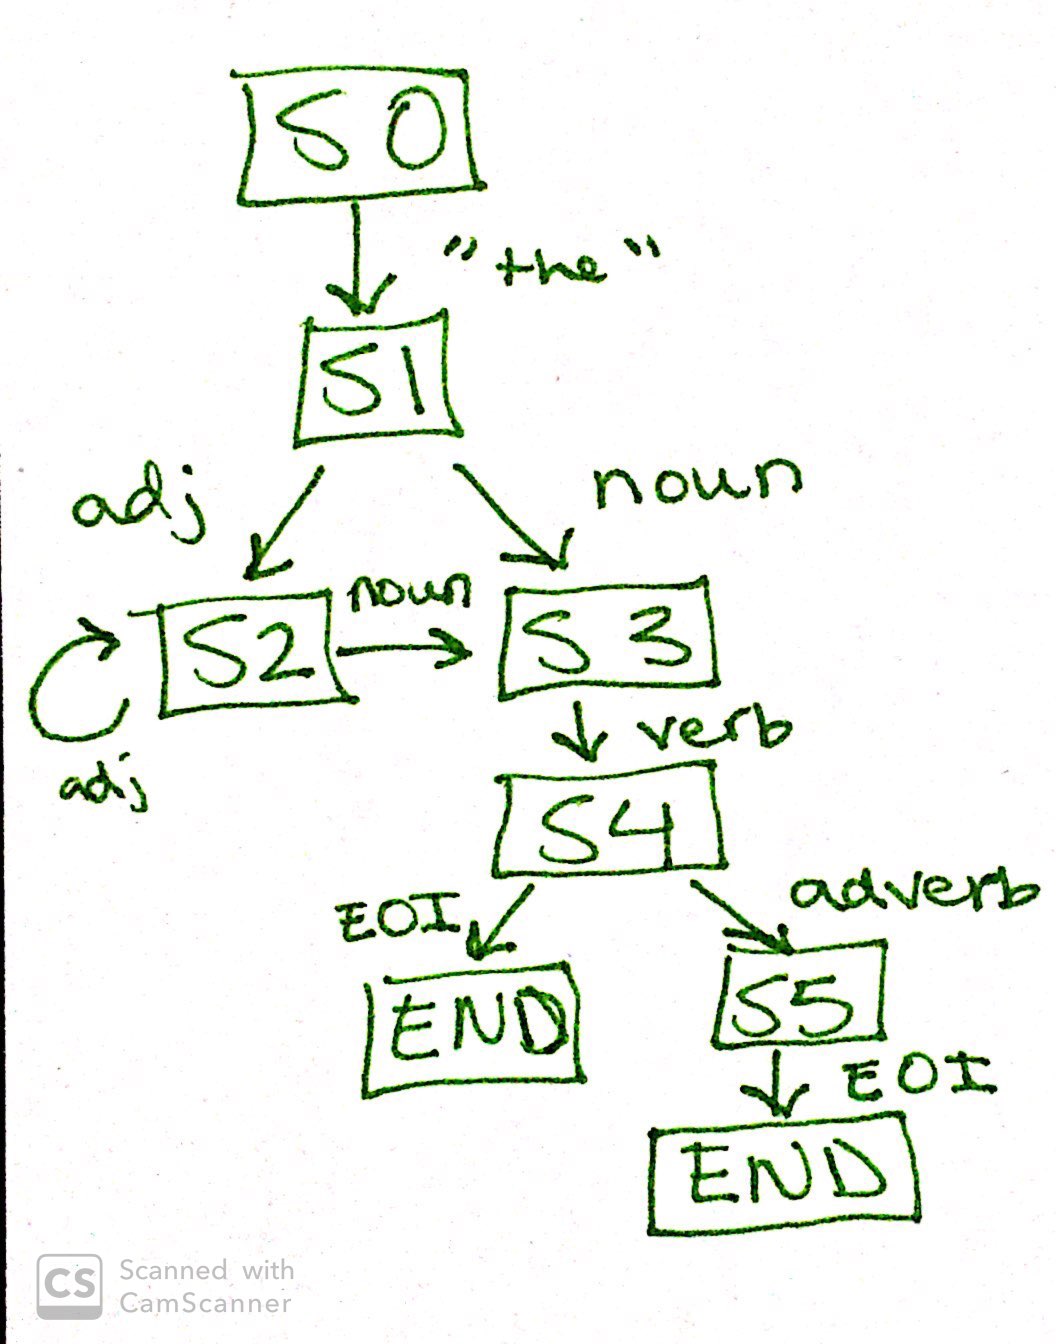 S0
"the"
S1
adj
noun
noun
S2
S3
adj
verb
S4
EOI
adverb
END
S5
EOI
END
CS Scanned with
CamScanner